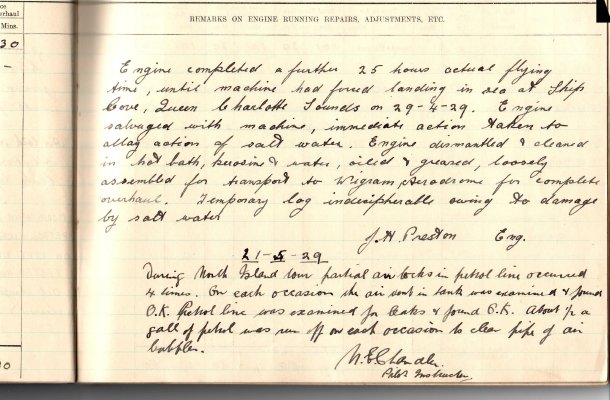 ce
erhaul
Mins.
30
–
REMARKS ON ENGINE RUNNING REPAIRS, ADJUSTMENTS, ETC.
Engine completed a further 25 hours actual flying
time, until machine had forced landing in sea at Ships
Cove, Queen Charlotte Sounds on 29-4-29. Engine
salvaged with machine, immediate action taken to
allay action of salt water. Engine dismantled & cleaned
in hot bath, kerosine & water, oiled & greased, loosely
assembled for transport to Wigram Aerodrome for complete
overhaul. Temporary log indecipherable owing to damage
by salt water
J.H. Preston Eng.
21-5-29
During North Island tour partial air locks in petrol line occurred
4 times. On each occasion the air vent in tank was examined & found
O.K. Petrol line was examined for leaks & found O.K. About 1/2 a
gall of petrol was run off on each occasion to clear pipe of air
bubbles.
Pilot Instructor